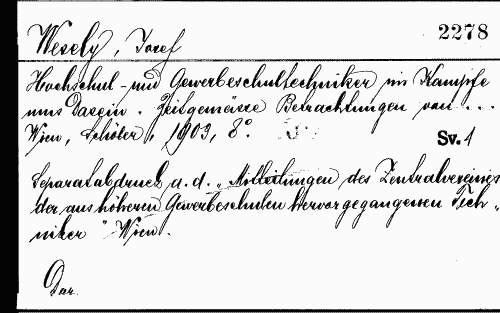 2278
Wesely, Josef
Hochschul- und Gewerbeschultechniker im Kampfe
ums Dasein. Zeitgemässe Betrachtungen von ...
Wien, Schöler, 1903, 8°.
Sv. 1
Separatabdruck a. d. „Mitteilungen des Zentralvereines
der aus höheren Gewerbeschulen hervorgegangenen Tech-
niker" Wien.
Dar.